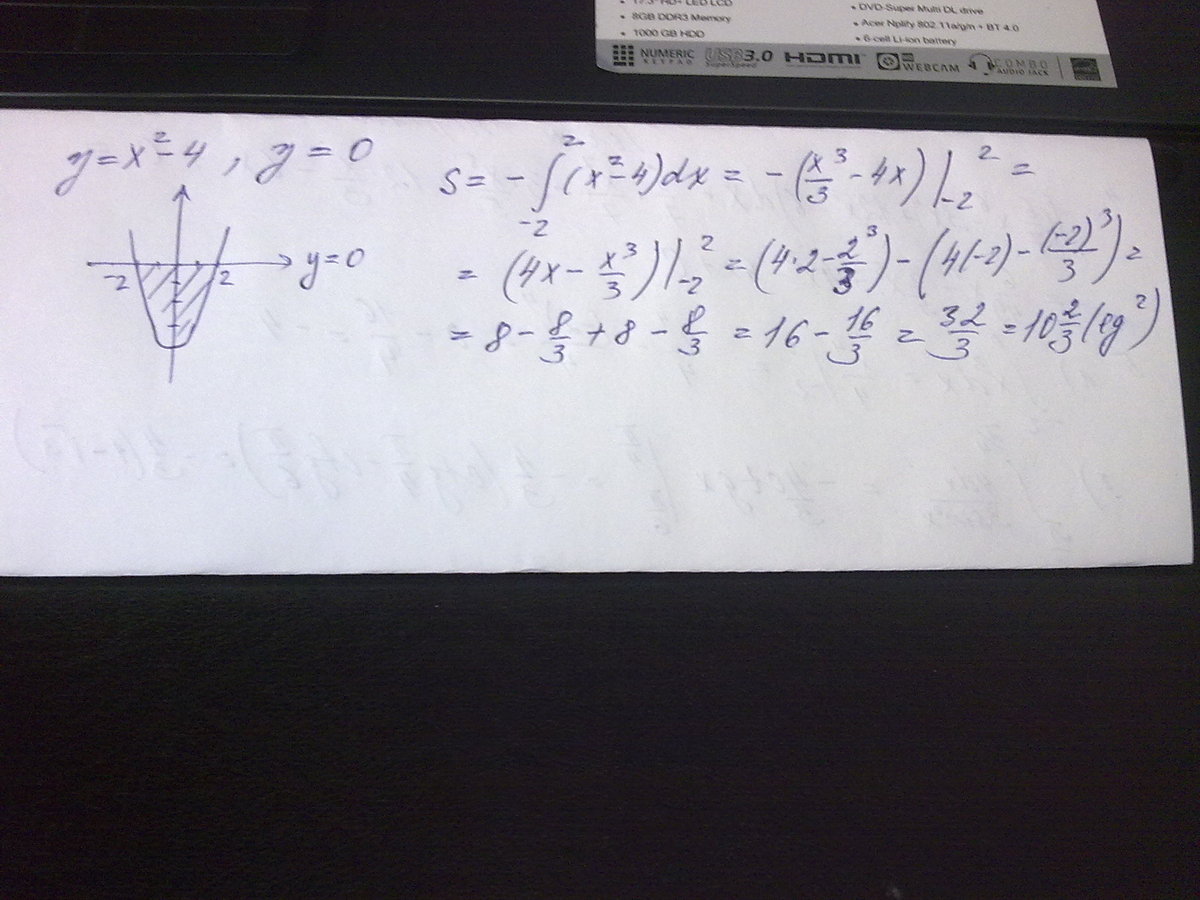 17.3" HD+ LED LCD
• 8GB DDR3 Memory
• 1000 GB HDD
• DVD-Super Multi DL drive
• Acer Nplify 802.11a/g/n + BT 4.0
• 6-cell Li-ion battery
NUMERIC KEYPAD USB 3.0 SuperSpeed HDMI HD WEBCAM COMBO AUDIO JACK
y=x²-4, y=0
-2 2 y=0
S= -∫₋₂²(x²-4)dx = -(x³/3 - 4x)|₋₂² =
= (4x - x³/3)|₋₂² = (4·2 - 2³/3) - (4(-2) - (-2)³/3) =
= 8 - 8/3 + 8 - 8/3 = 16 - 16/3 = 32/3 = 10 2/3 (eg²)